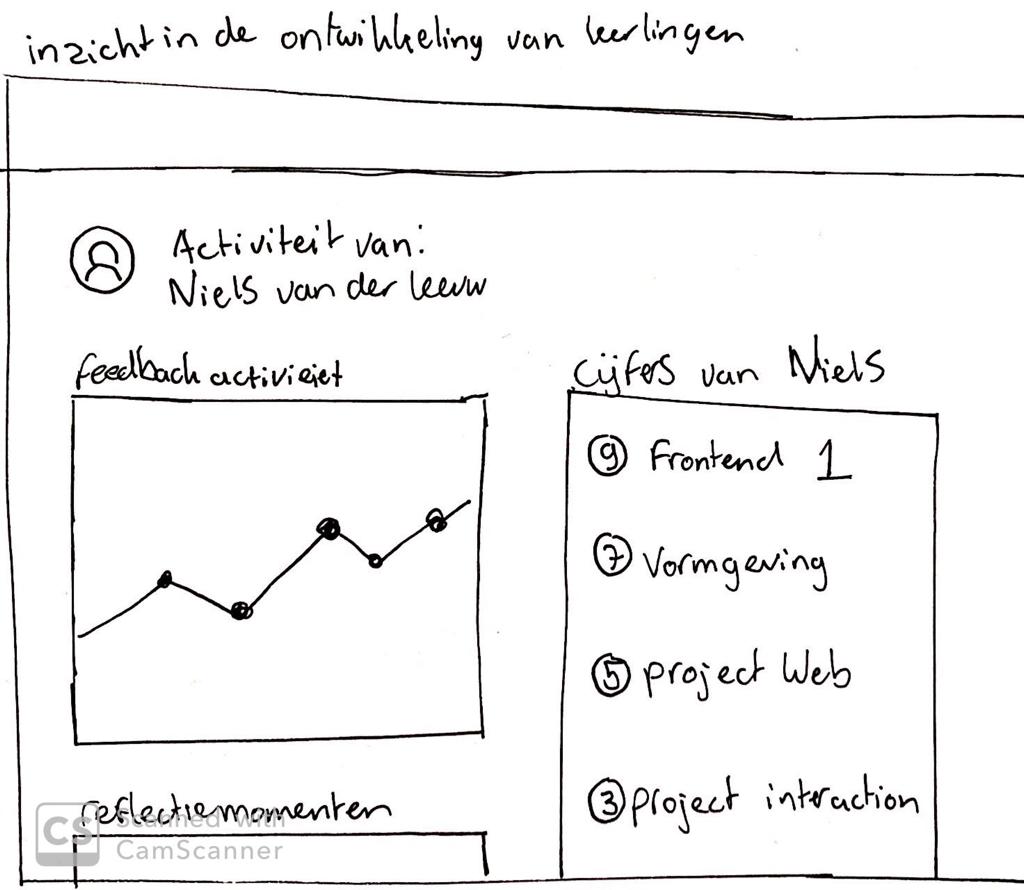 inzicht in de ontwikkeling van leerlingen
Activiteit van:
Niels van der leeuw
feedback activieiet
cijfers van Niels
9 Frontend 1
7 Vormgeving
5 project Web
3 project interaction
reflectiemomenten
CS Scanned with
CamScanner